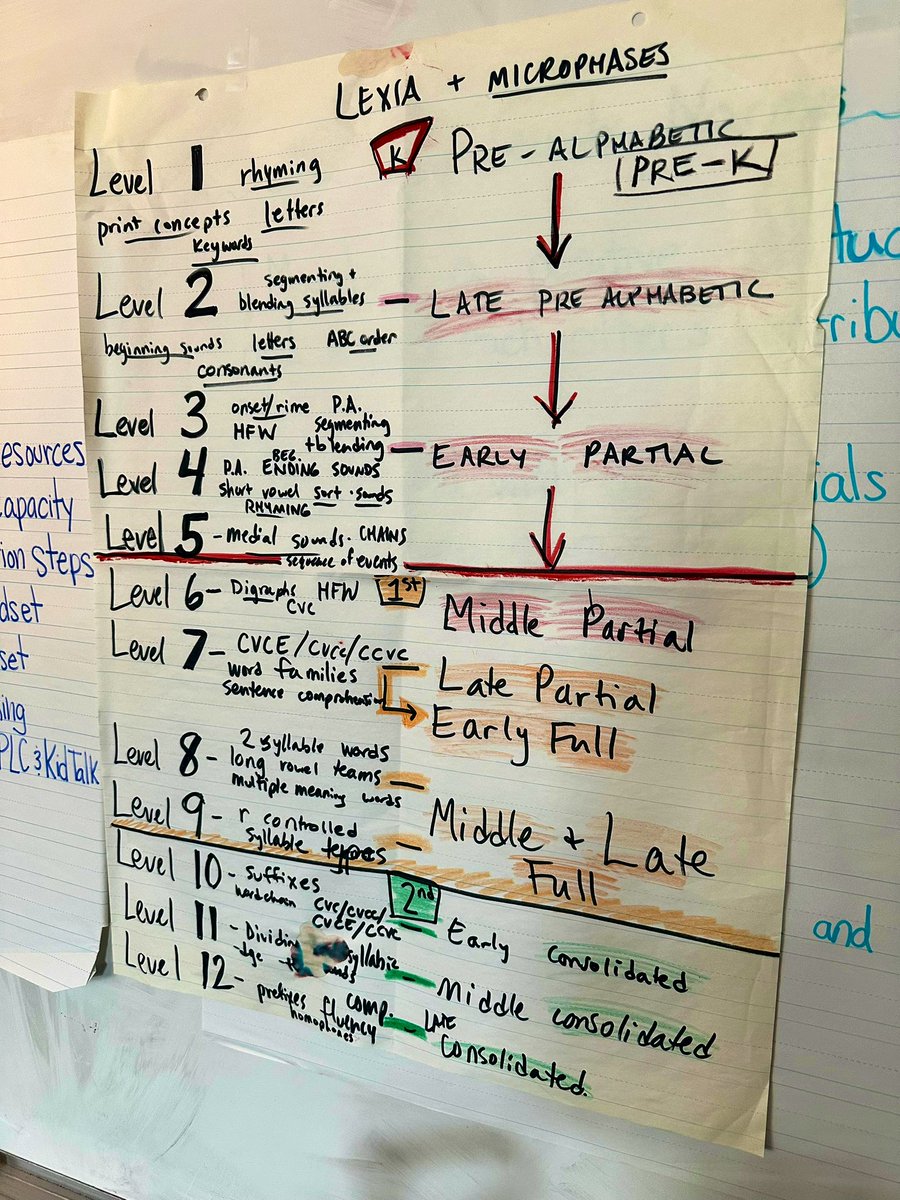 LEXIA + MICROPHASES
Level 1 rhyming
print concepts letters
Keywords
K PRE-ALPHABETIC
PRE-K
Level 2 segmenting +
blending syllables - LATE PRE ALPHABETIC
beginning sounds letters ABC order
consonants
Level 3 onset/rime P.A.
HFW segmenting
+ blending - EARLY PARTIAL
Level 4 P.A. BEG. ENDING SOUNDS
short vowel sort · sounds
RHYMING
Level 5 - medial sounds · CHAINS
sequence of events
Level 6 - Digraphs HFW 1st
CVC
Middle Partial
Level 7 - CVCE/CVCC/CCVC
word families
sentence comprehension
Late Partial
Early Full
Level 8 - 2 syllable words
long vowel teams -
multiple meaning words
Level 9 - r controlled
syllable types -
Middle + Late
Full
Level 10 - suffixes 2nd
CVC/CVCC/
CVCE/CCVC - Early consolidated
Level 11 - Dividing syllabic - Middle consolidated
dge
Level 12 - prefixes comp. - LATE
fluency consolidated.
homophones
esources
capacity
ion steps
dset
set
ing
PLC & Kid Talk
tuc
tribu
ials
)
and